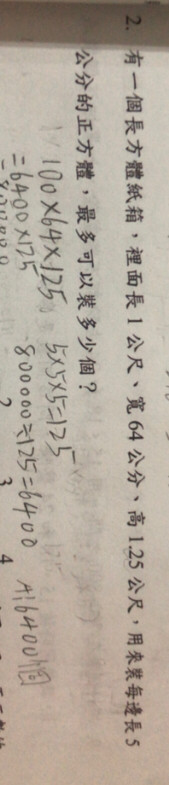 2. 有一個長方體紙箱，裡面長1公尺、寬64公分、高1.25公尺，用來裝每邊長5
公分的正方體，最多可以裝多少個？
100×64×125 5×5×5=125
=6400×125 800000÷125=6400 A:6400個
2 3 4